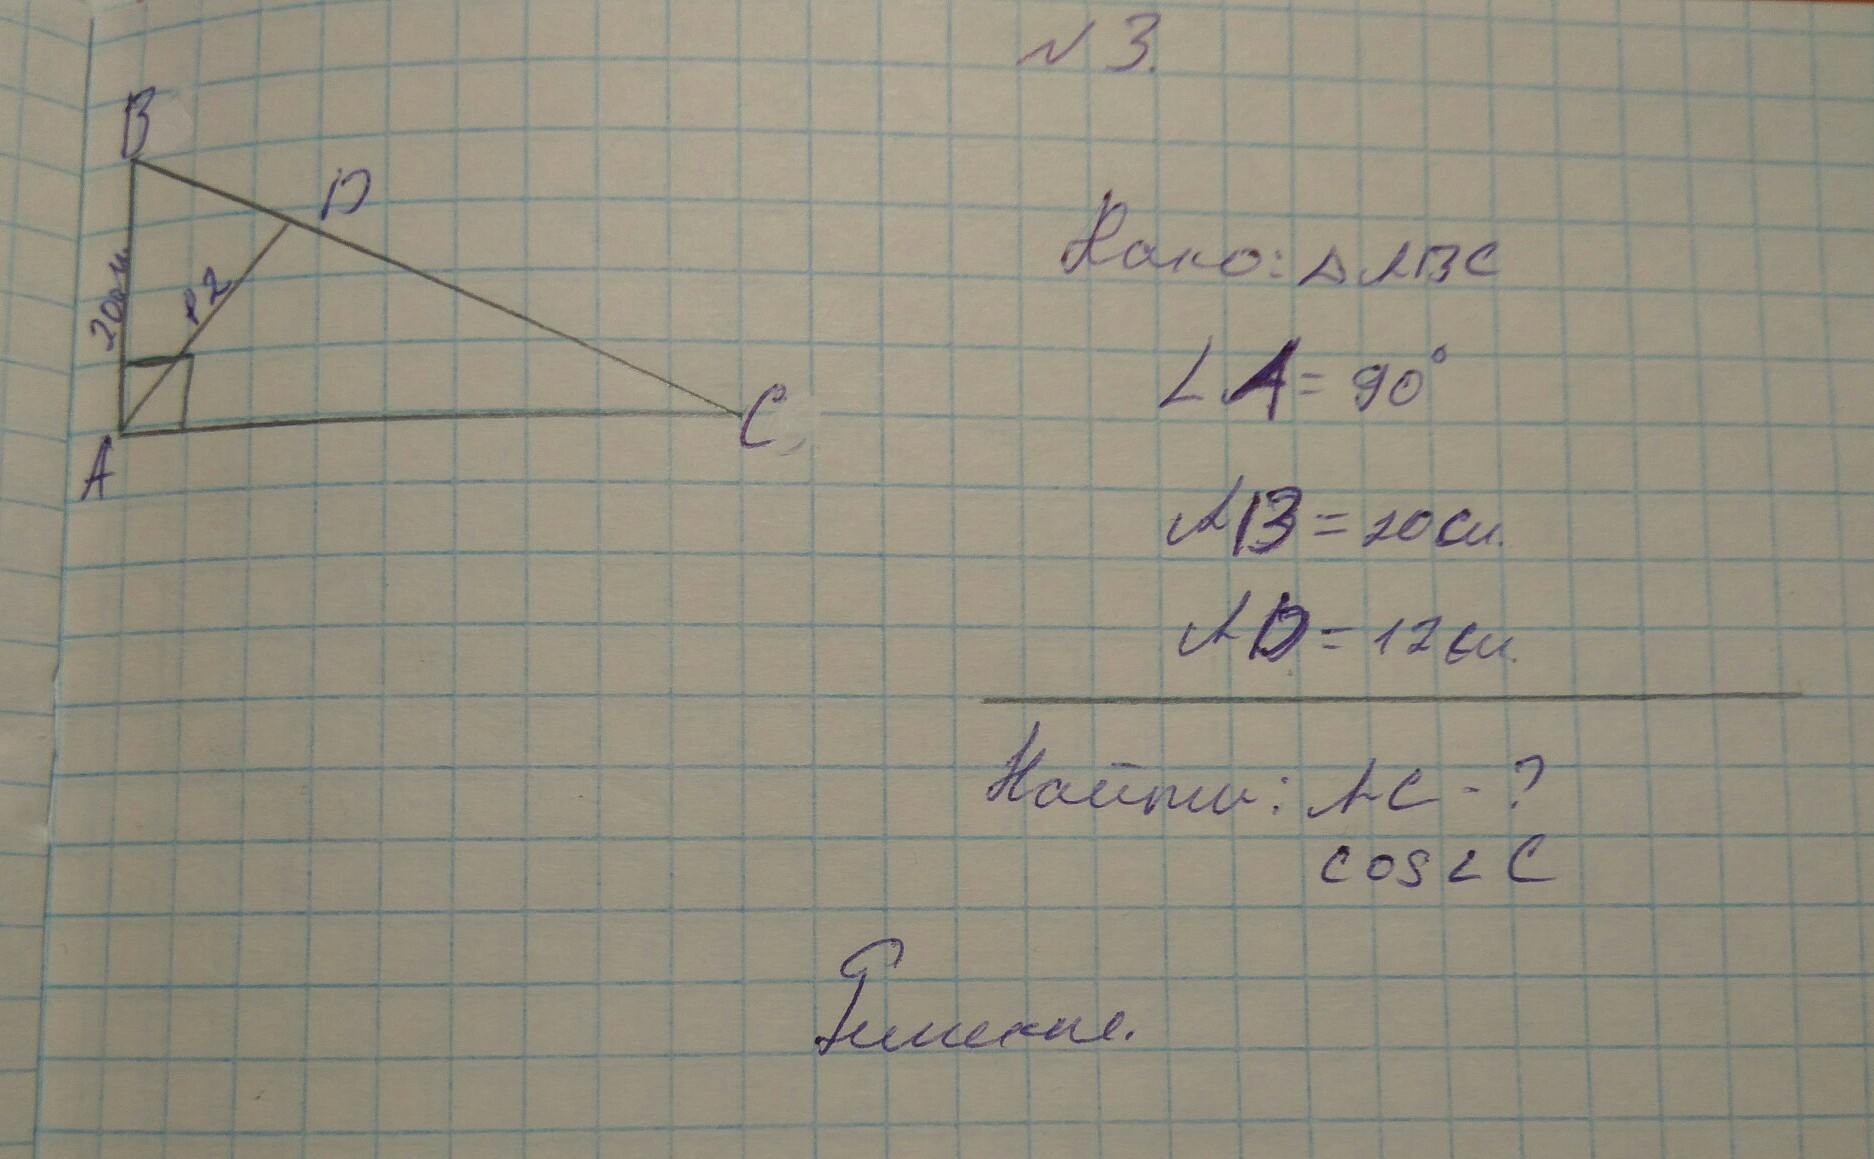 N 3.
B
D
20см.
12
A
C
Дано: △ABC
∠A = 90°
AB = 20 см.
AD = 12 см.
Найти: AC - ?
cos∠C
Решение.